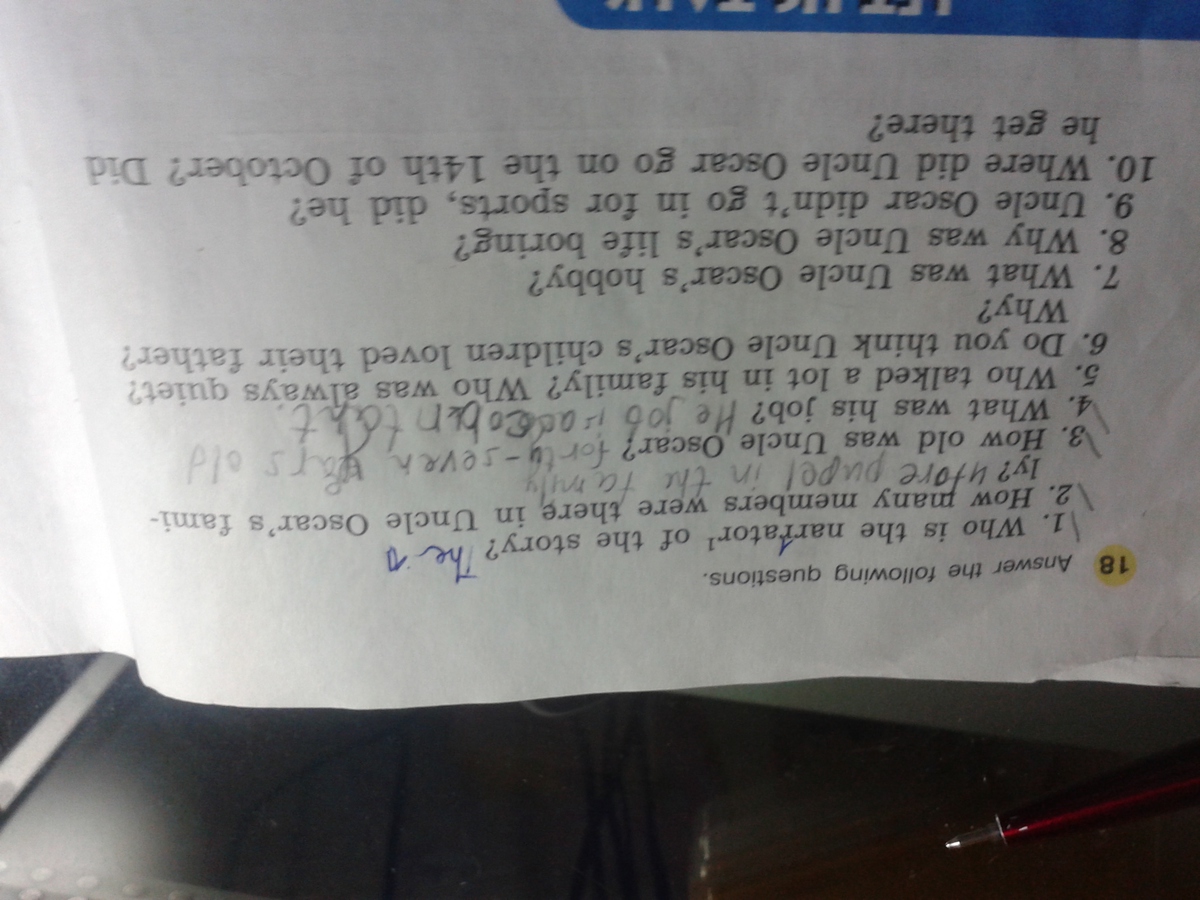 18 Answer the following questions.
1. Who is the narrator¹ of the story? The
2. How many members were there in Uncle Oscar's fami-
ly? in the family
3. How old was Uncle Oscar? forty-seven years old
4. What was his job? He job is
5. Who talked a lot in his family? Who was always quiet?
6. Do you think Uncle Oscar's children loved their father?
Why?
7. What was Uncle Oscar's hobby?
8. Why was Uncle Oscar's life boring?
9. Uncle Oscar didn't go in for sports, did he?
10. Where did Uncle Oscar go on the 14th of October? Did
he get there?
LET US TALK